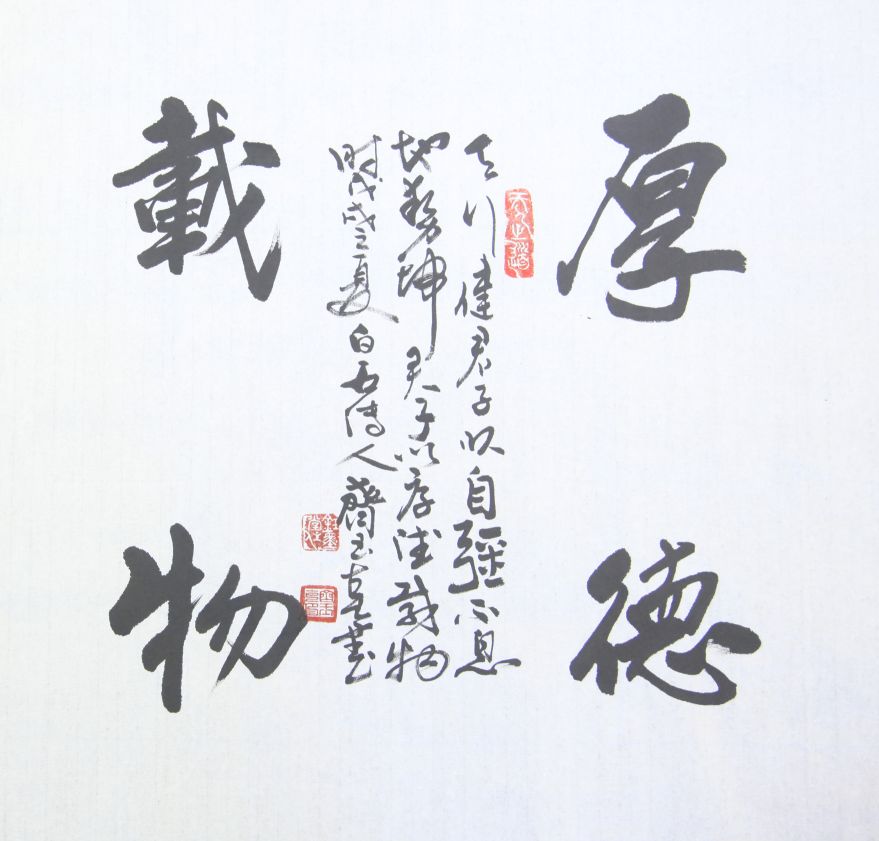 厚德
載物
天行健君子以自彊不息
地势坤君子以厚德載物
時戊戌之夏白石傳人齊玉書
天之道